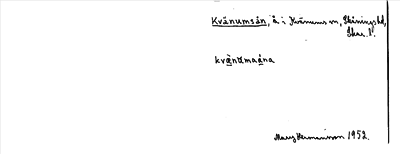 Kvänumsån, å i Kvänums sn, Skånings hd,
Skar. l.
kvä̀nʉmaána
Mary Hermansson 1952.